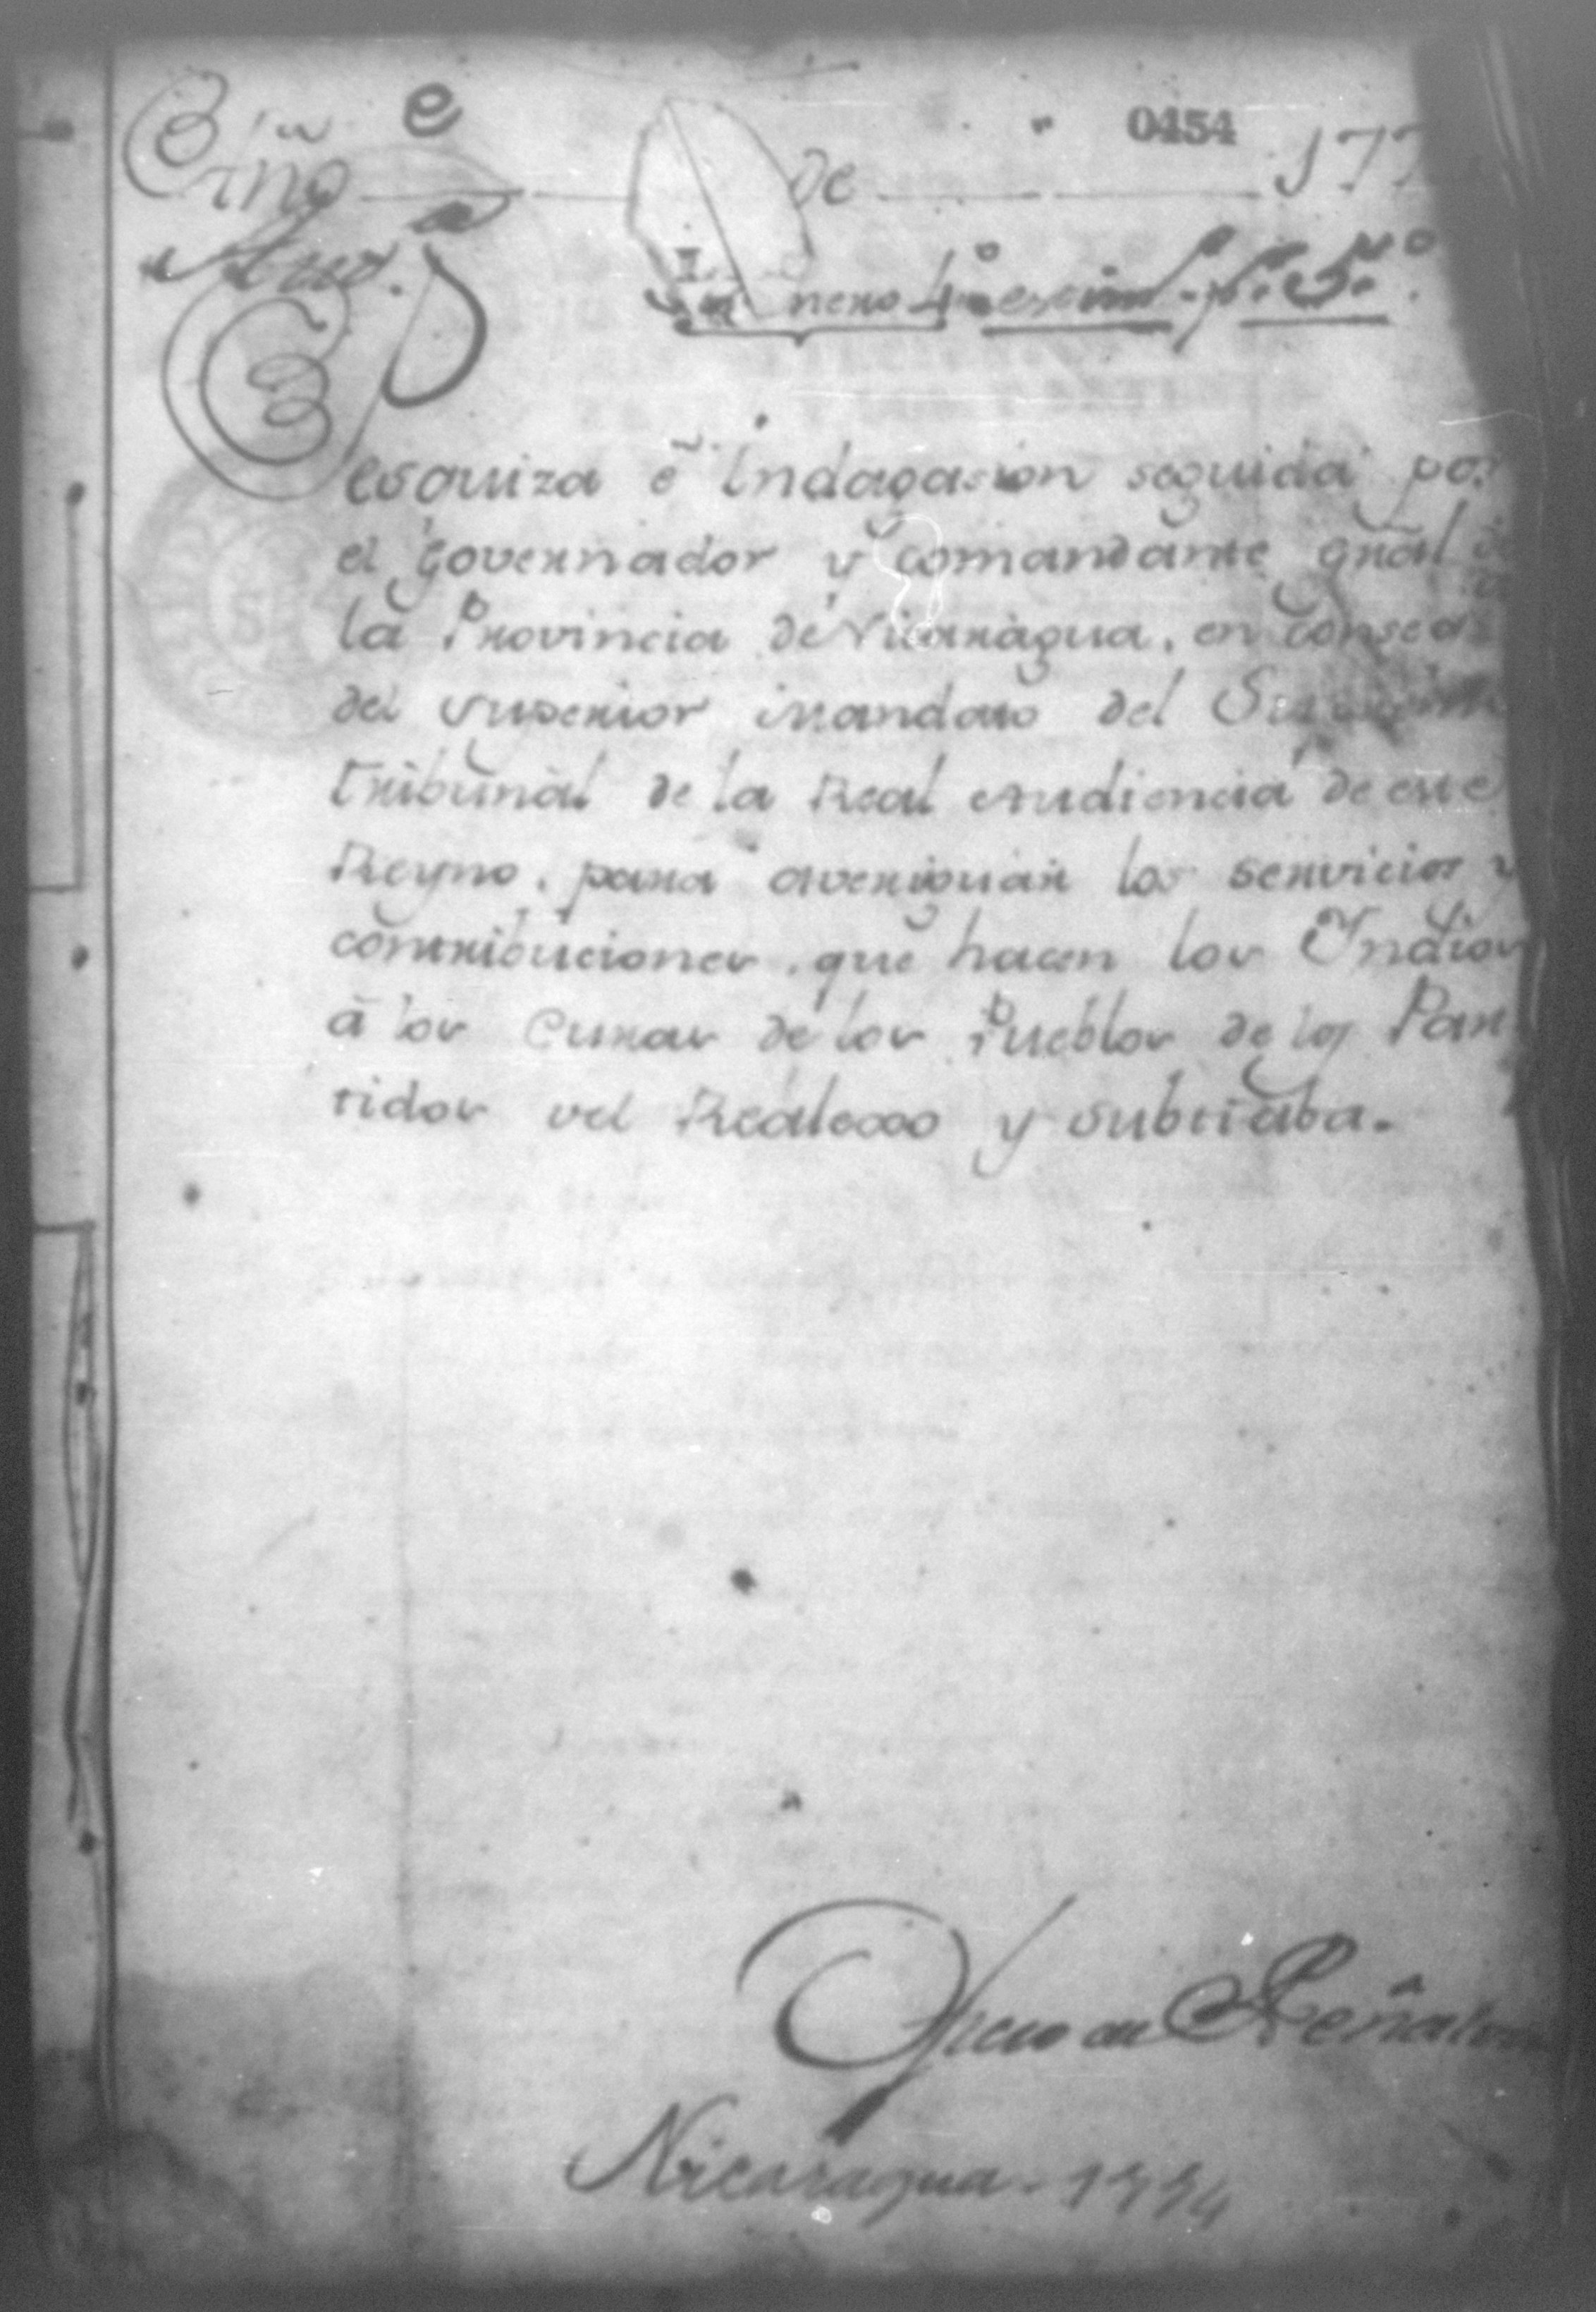 e
0454
Criño de 177
Aud.
nero 4.º
Pesquiza é Indagasion seguida por
el Governador y Comandante gñal de
la Provincia de Nicaragua, en conseq.ª
del Superior mandato del Supremo
tribunal de la Real Audiencia de este
Reyno, para averiguar los servicios y
contribuciones, que hacen los Indios
á los Curas de los Pueblos de los Par
tidos del Realexo y Subtiaba.
Peñalver
Nicaragua. 1774